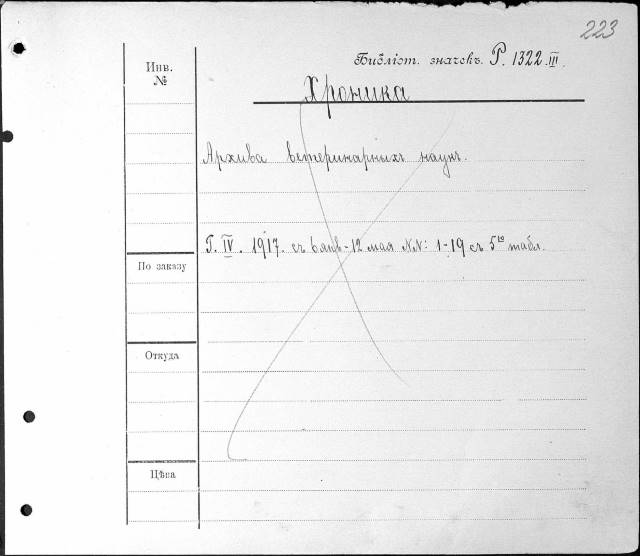 223
Инв.
№
Библіот. значекъ. Р. 1322. III.
Хроника
Архива ветеринарныхъ наукъ.
Г. IV. 1917. съ 6 янв - 12 мая NN: 1-19 съ 5ю табл.
По заказу
Откуда
Цѣна